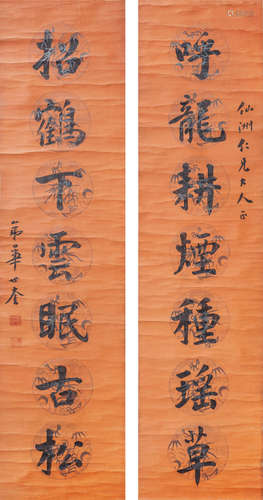 仙洲仁兄大人正
呼龍耕煙種瑤草
招鶴下雲眠古松
弟華世奎